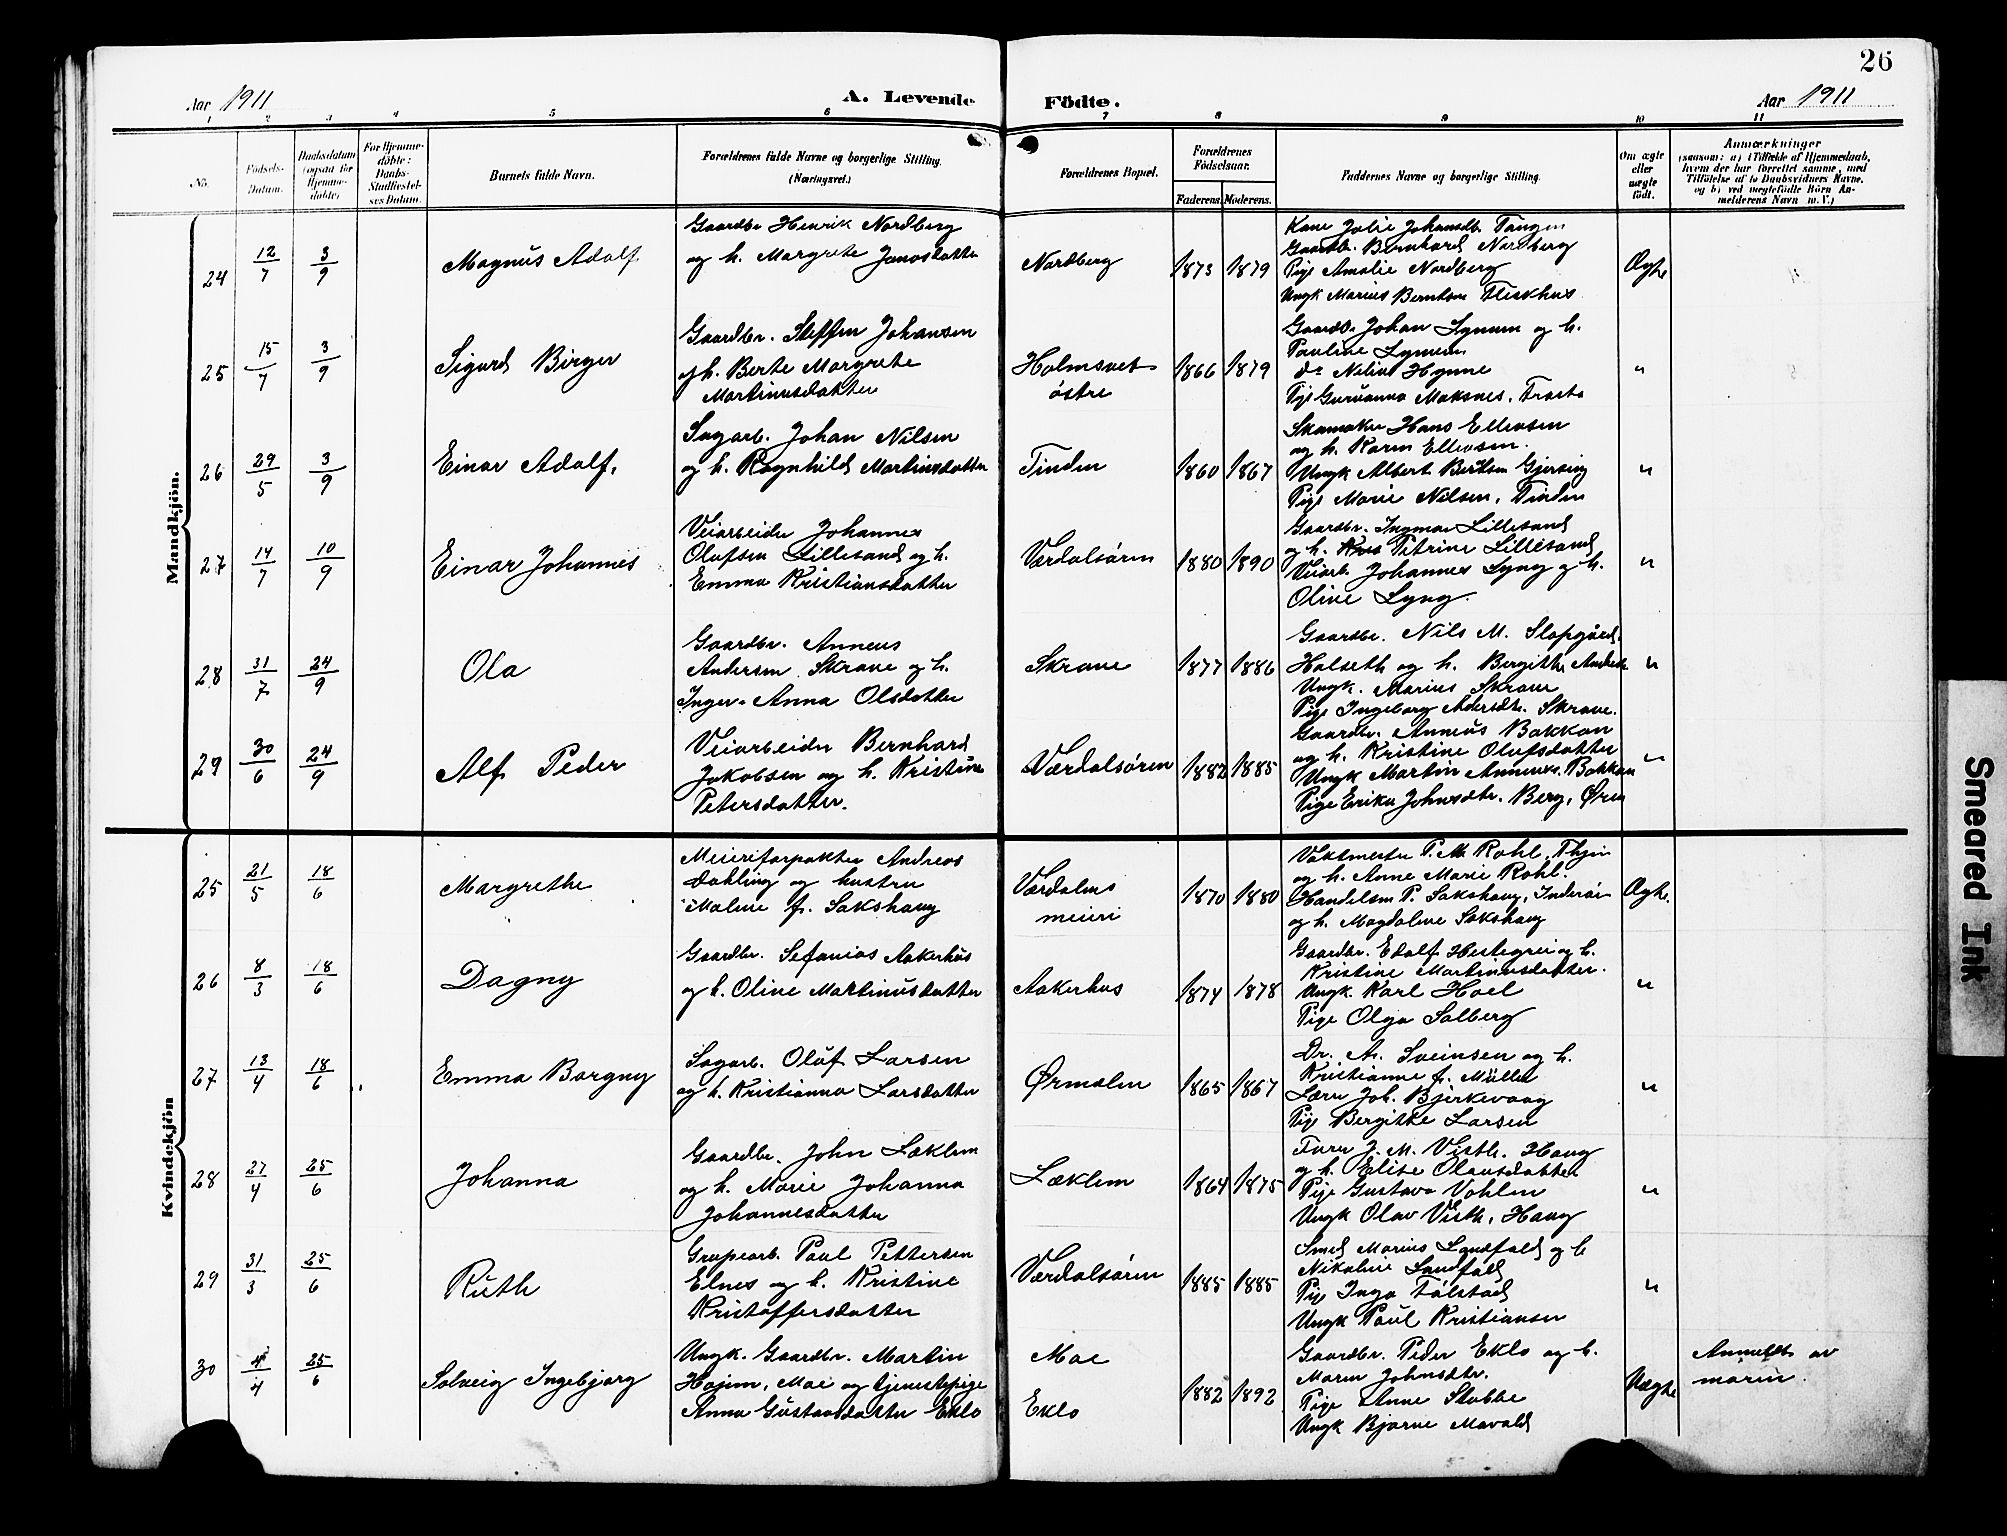 26
Aar 1911
A. Levende Födte.
Aar 1911
1 2 3 4 5 6 7 8 9 10 11
No.
Födsels-
Datum.
Daabsdatum
(ogsaa for
Hjemme-
döbte)
For Hjemme-
döbte:
Daabs-
Stadfæstel-
ses Datum.
Barnets fulde Navn.
Forældrenes fulde Navne og borgerlige Stilling.
(Næringsvei.)
Forældrenes Bopæl.
Forældrenes
Födselsaar.
Faderens.
Moderens.
Faddernes Navne og borgerlige Stilling.
Om ægte
eller
uægte
födt.
Anmærkninger
(saasom: a) i Tilfælde af Hjemmedaab,
hvem der har forrettet samme, med
Tilföielse af to Daabsvidners Navne,
og b) ved uægtefödte Börn An-
melderens Navn m. V.)
Mandkjön.
24
12/7
3/9
Magnus Adolf
Gaardbr Henrik Nordberg
og h. Margrete Janosdatter
Nordberg
1873
1879
Kone Julie Johansdtr. Tangen
Gaardbr. Bernhard Nordberg
Pige Amalie Nordberg
Ungk Marius Berntsen Fleskhus
Ægte
25
15/7
3/9
Sigurd Birger
Gaardbr. Steffen Johansen
og h. Berte Margrete
Martinusdatter
Holmsvet
östre
1866
1879
Gaardb. Johan Lynum og h.
Pauline Lynum
do Hynne
Pige Maksnes, Frosta
"
26
29/5
3/9
Einar Adolf.
Sagarb. Johan Nilsen
og h. Ragnhild Martinusdatter
Tinden
1860
1867
Skomaker Hans Ellevsen
og h. Karen Ellevsen.
Ungk Albert Berdsen Gjersing
Pige Marie Nilsen, Tinden
"
27
14/7
10/9
Einar Johannes
Veiarbeider Johannes
Olafsen Lillesand og h.
Emma Kristiansdatter
Værdalsören
1880
1890
Gaardbr. Ingmar Lillesand
og h. Petrine Lillesand
Veiarb. Johannes Lyng og h.
Olive Lyng.
"
28
31/7
24/9
Ola
Gaardbr. Anneus
Andersen Skrove og h.
Inger-Anna Olsdatter
Skrove
1877
1886
Gaardbr. Nils M. Slapgård,
Holseth og h. Bergitte
Ungk. Marius Skrove
Pige Ingeborg Andersdtr. Skrove.
"
29
30/6
24/9
Alf Peder
Veiarbeider Bernhard
Jakobsen og h. Kristine
Petersdatter.
Værdalsören
1882
1885
Gaardbr. Anneus Bakkan
og h. Kristine Olufsdatter
Ungk Martin Anneuss. Bakkan
Pige Erika Johnsdtr. Berg, Ören
"
Kvindekjön
25
21/5
18/6
Margrethe
Meieriforpakter Andreas
Dahling og hustru
Malene f. Sakshaug
Værdalens
meieri
1870
1880
Vaktmester P. M. Rohl, Thjin
og h. Anne Marie Rohl.
Handelsm P. Sakshaug, Inderöi
og h. Magdalene Sakshaug
Ægte.
26
8/3
18/6
Dagny
Gaardbr. Sefanias Aakerhus
og h. Oline Martinusdatter
Aakerhus
1874
1878
Gaardbr. Edolf Hestegrei og h.
Kristine Martinusdatter.
Ungk. Karl Hoel
Pige Olga Salberg
"
27
13/4
18/6
Emma Borgny
Sagarb. Oluf Larsen
og h. Kristianna Larsdatter
Ørmelen
1865
1867
Dr. A. Sveinsen og h.
Kristianne f. Müller
Lærer Joh. Bjerkevaag
Pige Bergitte Larsen
"
28
27/4
25/6
Johanna
Gaardbr. John Læklem
og h. Marie Johanna
Johannesdatter
Læklem
1864
1875
Furer J. M. Visth. Haug
og h. Elise Olausdatter
Pige Gustava Vohlen
Ungk Olav Visth, Haug
"
29
31/3
25/6
Ruth
Grupearb. Paul Pettersen
Elnes og h. Kristine
Kristoffersdatter
Værdalsören
1885
1885
Smed Marius Landfald og h
Nikoline Landfald
Pige Inga Tolstad
Ungk Paul Kristiansen
"
30
4/4
25/6
Solveig Ingebjorg
Ungk. Gaardbr. Martin
Hojem, Moe og tjenestepige
Anna Gustavsdatter Eklo
Moe
Eklo
1882
1892
Gaardbr. Peder Eklo og h.
Maren Johnsdtr.
Pige Anne Stubbe
Ungk Bjarne Mævald
Uægte
Anmeldt av
moren.
Smeared Ink